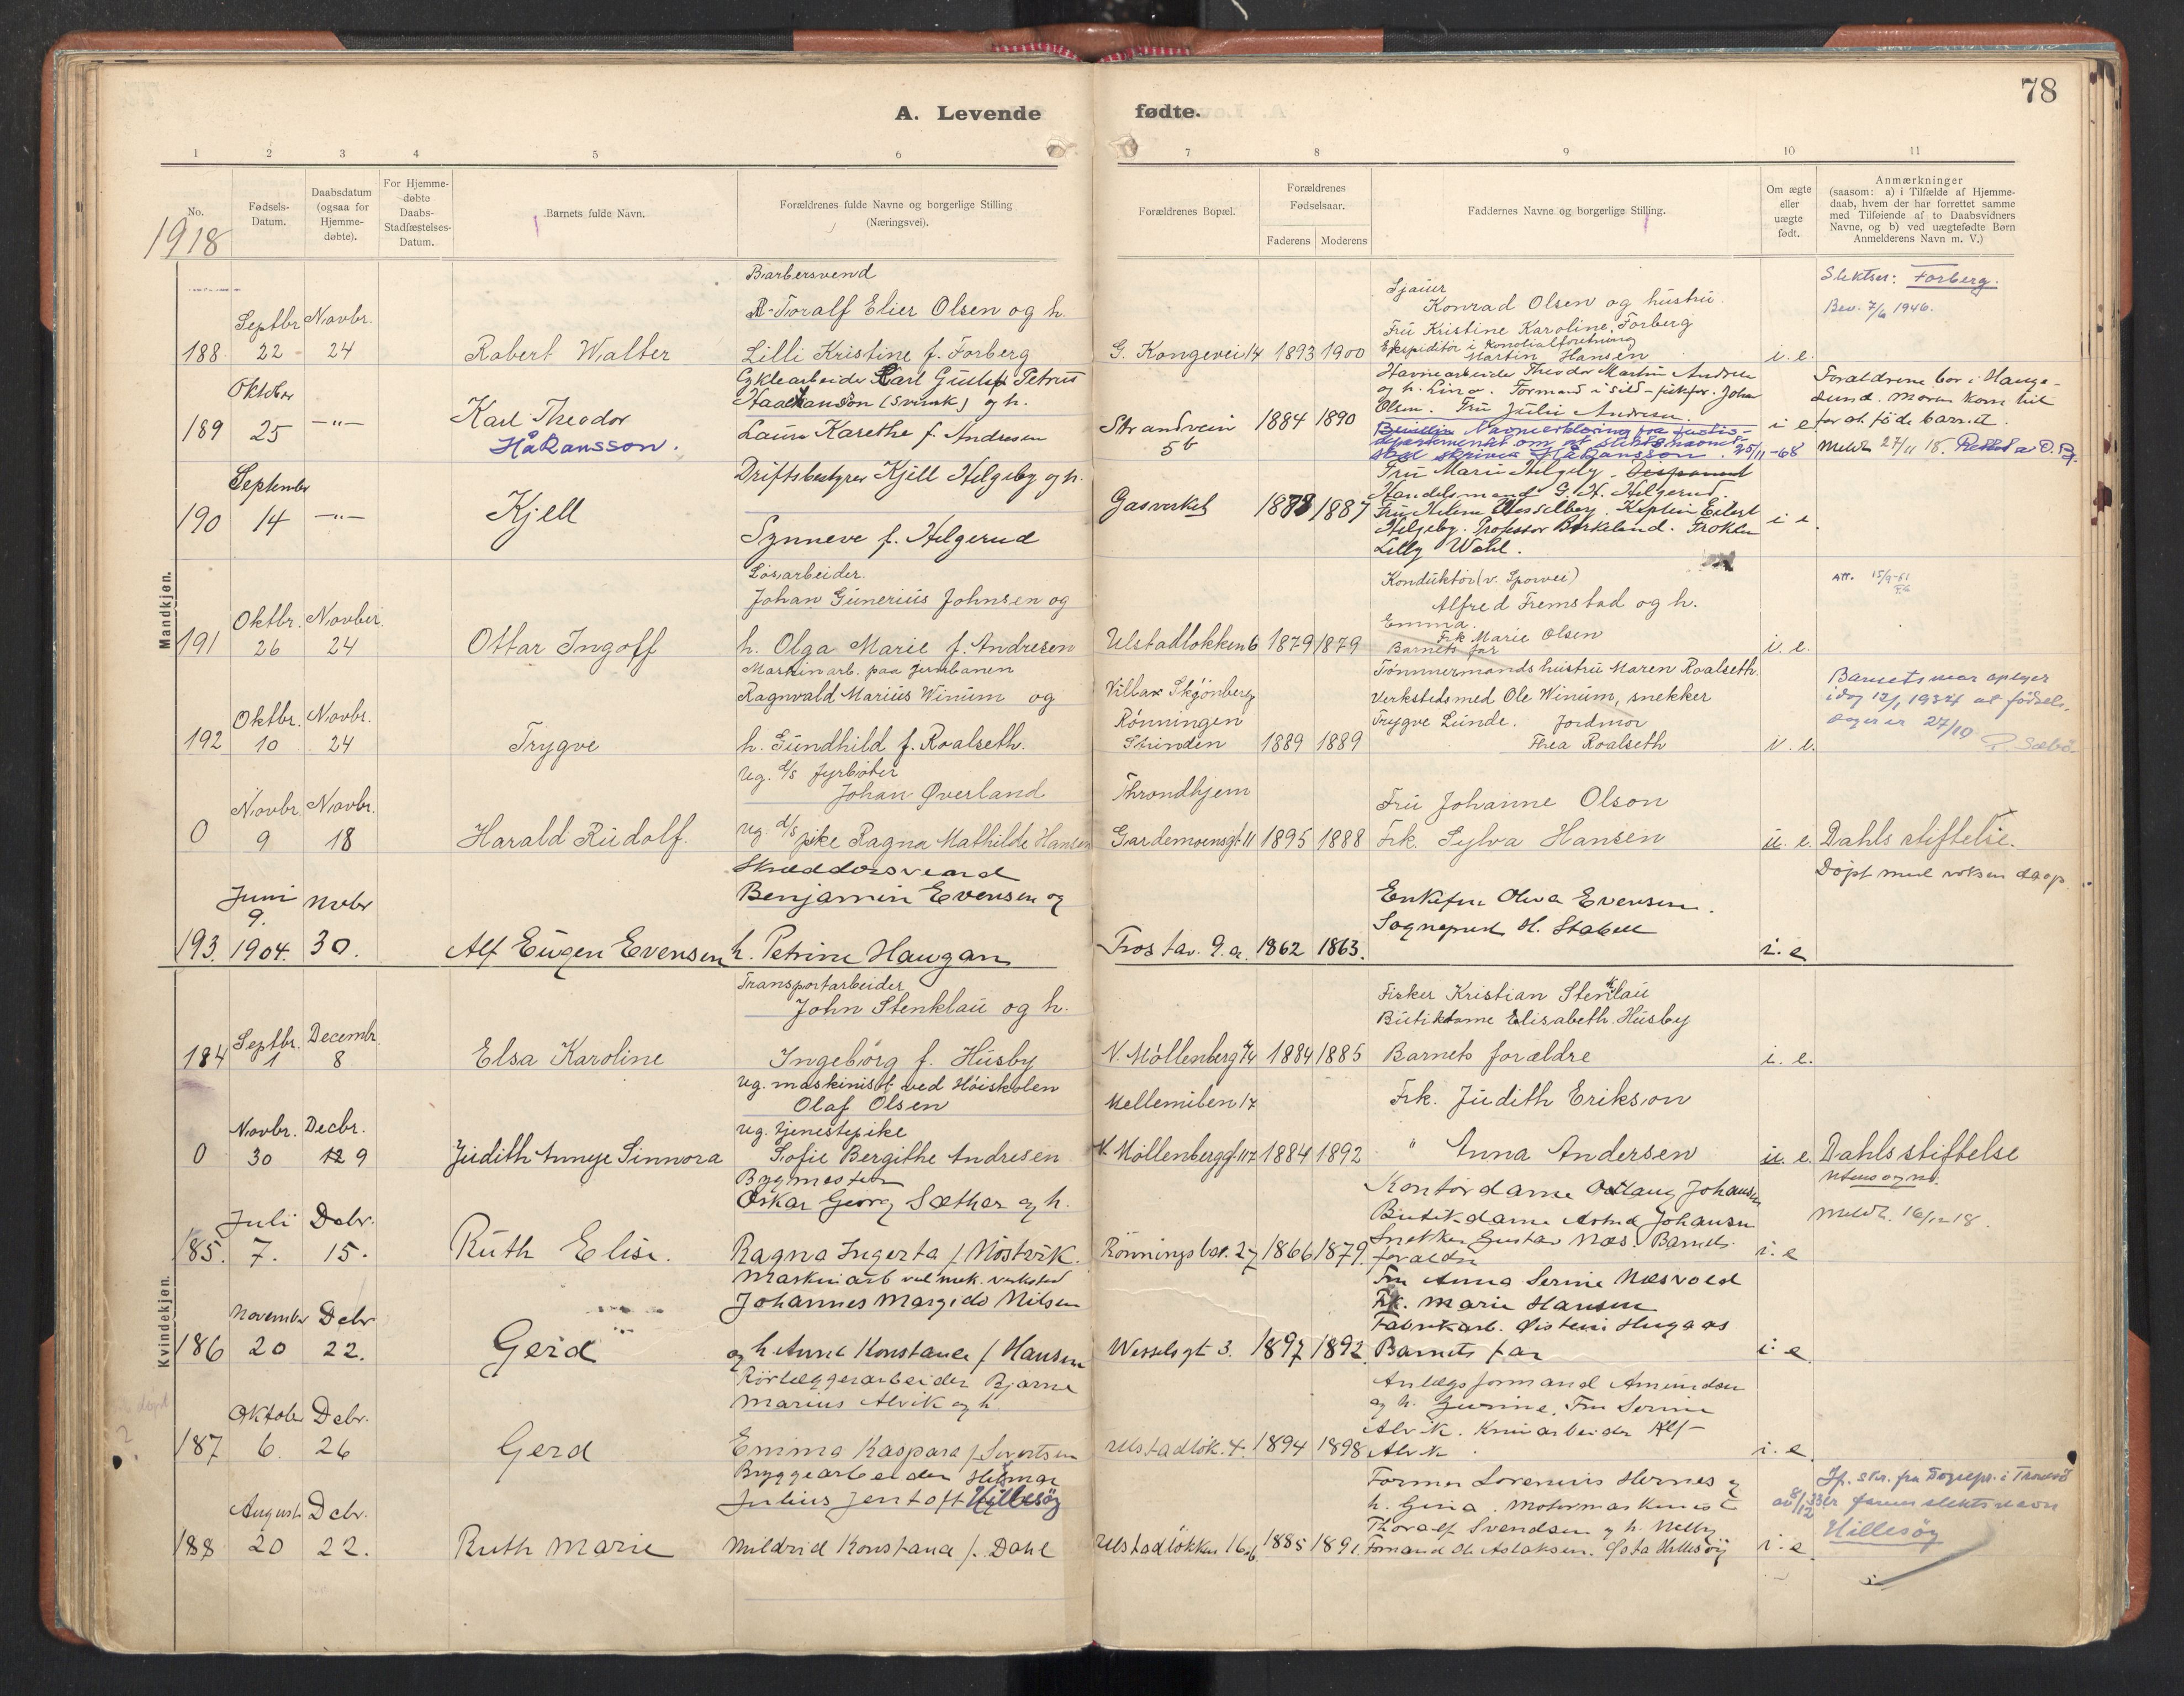 78
A. Levende fødte.
1 2 3 4 5 6 7 8 9 10 11
No.
1918
Fødsels-
Datum.
Daabsdatum
(ogsaa for
Hjemme-
døbte).
For Hjemme-
døbte
Daabs-
Stadfæstelses-
Datum.
Barnets fulde Navn.
Forældrenes fulde Navne og borgerlige Stilling
(Næringsvei).
Forældrenes Bopæl.
Forældrenes
Fødselsaar.
Faderens Moderens
Faddernes Navne og borgerlige Stilling.
Om ægte
eller
uægte
født.
Anmærkninger
(saasom: a) i Tilfælde af Hjemme-
daab, hvem der har forrettet samme
med Tilføiende af to Daabsvidners
Navne, og b) ved uægtefødte Børn
Anmelderens Navn m. V.)
Mandkjøn.
188 Septbr 22 Novbr. 24
Robert Walter
Barbersvend
Toralf Elier Olsen og h.
Lilli Kristine f. Forberg
G. Kongevei 14 1893 1900
Sjauer
Konrad Olsen og hustru
Fru Kristine Karoline Forberg
Ekspiditør i Konolialforretning
Martin Hansen
i. e.
Slektsn: Forberg.
Bev. 7/6 1946.
189 Oktober 25 -"-
Karl Theodor
Håkansson.
Cyklearbeider Karl Gustaf Petrus
Haakanson (svensk) og h.
Laura Karethe f. Andresen
Strandvein 5b 1884 1890
Havnearbeider Theodor Martin Andresen
og h. Lina. Formand i sild-fiskfor. Johan
Olsen. Fru Julie Andresen.
Navneerklæring fra Justis-
departementet om at slektsnavnet
skal skrives Håkansson. 25/11-68
i e
Forældrene bor i Hauge-
sund. Moren kom hit
for at föde barnet.
Meldt 27/11 18.
190 September 14 -"-
Kjell
Driftsbestyrer Kjell Helgeby og h.
Synneve f. Helgerud
Gasverket 1878 1887
Fru Marie Helgeby.
Handelsmand G. H. Helgerud.
Fru Helene Wesselberg. Kaptein Eilert
Helgeby. Professor Birkeland. Frøken
Lilly Wahl.
i e.
191 Oktbr. 26 Novber. 24
Ottar Ingolf
Løsarbeider.
Johan Gunerius Johnsen og
h. Olga Marie f. Andresen
Ulstadløkken 6 1879 1879
Konduktør (v. Sporvei)
Alfred Fremstad og h.
Emma.
Frk Marie Olsen
Barnets far
i. e.
Att. 15/9-61
192 Oktbr. 10 Novbr. 24
Trygve
Maskinarb. paa Jernbanen
Ragnvald Marius Winum og
h. Gundhild f. Roalseth.
Villax Skjønberg
Rønningen
Strinden 1889 1889
Tømmermands hustru Maren Roalseth.
Verkstedsmed Ole Winum, snekker
Trygve Lunde. Jordmor
Thea Roalseth
i. e.
Barnets mor opgyr
idag 12/1 1934 at fødsels-
dagen er 27/10
P. Sæbø
0 Novbr. 9 Novbr. 18
Harald Rudolf.
Ug. d/s fyrbøter
Johan Øverland
ug. d/s pike Ragna Mathilde Hansen
Throndhjem
Gardemoensgt 11 1895 1888
Fru Johanne Olson
Frk. Sylva Hansen
u. e.
Dahls stiftelse.
193. Juni 9. 1904. Nvbr 30.
Alf Eugen Evensen
Skreddersvend
Benjamin Evensen og
h. Petrine Haugan
Frostav. 9.a. 1862 1863.
Enkefru Olava Evensen.
Sogneprest H. Stabell
i. e
Döpt med voksen daap.
Kvindekjøn.
184 Septbr. 1 Decembr. 8
Elsa Karoline
Transportarbeider
John Stenklau og h.
Ingebørg f. Husby
N. Møllenberg 74 1884 1885
Fisker Kristian Stenklau
Butikdame Elisabeth Husby
Barnets forældre
i. e.
0 Novbr. 30 Decbr. 9
Judith Annye Sinnora
Ug. maskinist ved Høiskolen
Olaf Olsen
ug. tjenestepike
Sofie Bergithe Andresen
Mellemilen 17
N. Møllenberggt. 117 1884 1892
Frk. Judith Erikson
" Anna Andersen
u. e.
Dahls stiftelse
utensogns.
185. Juli 7. Debr. 15.
Ruth Elise.
Bygmester
Oskar Georg Sæther og h.
Ragna Ingerta f. Møstvik.
Rönningsbak. 27 1866 1879.
Kontordame Aslaug Johansen
Butikdame Astrid Johansen
Snekker Gustav Næs. Barnets
foreldre
i. e
Meldt. 16/12 18.
186 November 20 Debr 22.
Gerd
Maskinarb ved mek. verksted
Johannes Margido Nilsen
og h Anna Konstance f Hansen
Wesselsgt 3. 1897 1892.
Fru Anna Serine Næsvold
Frk. Marie Hansen
Fabrikarb. Øistein Hugaas
Barnets far
i. e.
187 Oktober 6. Debr. 26
Gerd
Rörlæggerarbeider Bjarne
Marius Alvik og h.
Emma Kaspara f. Sivertsen
Ulstadlök. 4. 1894 1898
Anlægsformand Amundsen
og h. Gurine. Fru Serine
Alvik. Kruiarbeider Alf
Alvik
i. e.
188 August 20 Debr. 22.
Ruth Marie
Bryggearbeider Hilmar
Julius Jentoft Hillesöy
Mildrid Konstance f. Dahl
Ulstadlökken 16b 1885 1891.
Former Lorentius Hernes og
h. Gina. Motormaskinist
Thoralf Svendsen og h. Nelly
Formand Ole Aslaksen. Asta Hillesöy
i. e.
Jf. skr. fra Sognepr. i Tromsö
av 8/12 33 er farens slektsnavn
Hillesöy